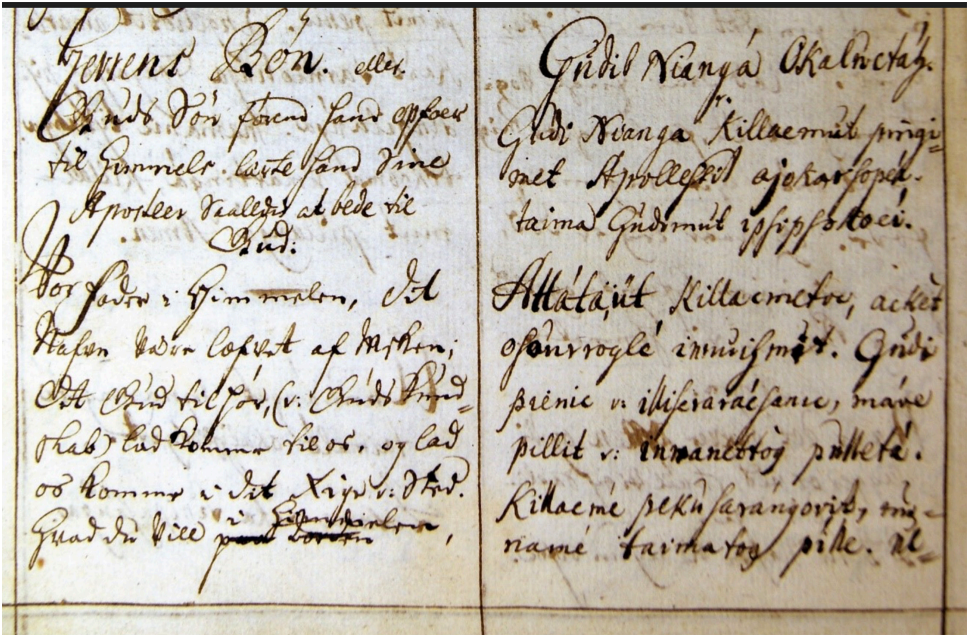 Herrens Bøn. eller
Guds Søn førend hand opfoer
til Himmels lærte hand Sine
Apostler Saaledis at bede til
Gud:
Vor fader i Himmelen, dit
Nafn være lofvet af
Dit Gud tilhør, (v: Guds Kund=
skab) lad komme til os, og lad
os komme i dit Rige v: Sted.
Hvad du vill i Himmelen,
Gudib Nianga Okaluctáh.
Gudi Nianga Killaemut pirigi=
met Apollesit ajokarsopei.
taima Gudimut ipsipsokoei.
Attátäut Killacmetoe, acket
innuisnut. Gudi
pienic v: máve
pillit v: innanetog pulletá.
Killacmé pekusarangovit, nu=
namé taimatog pille. ne=